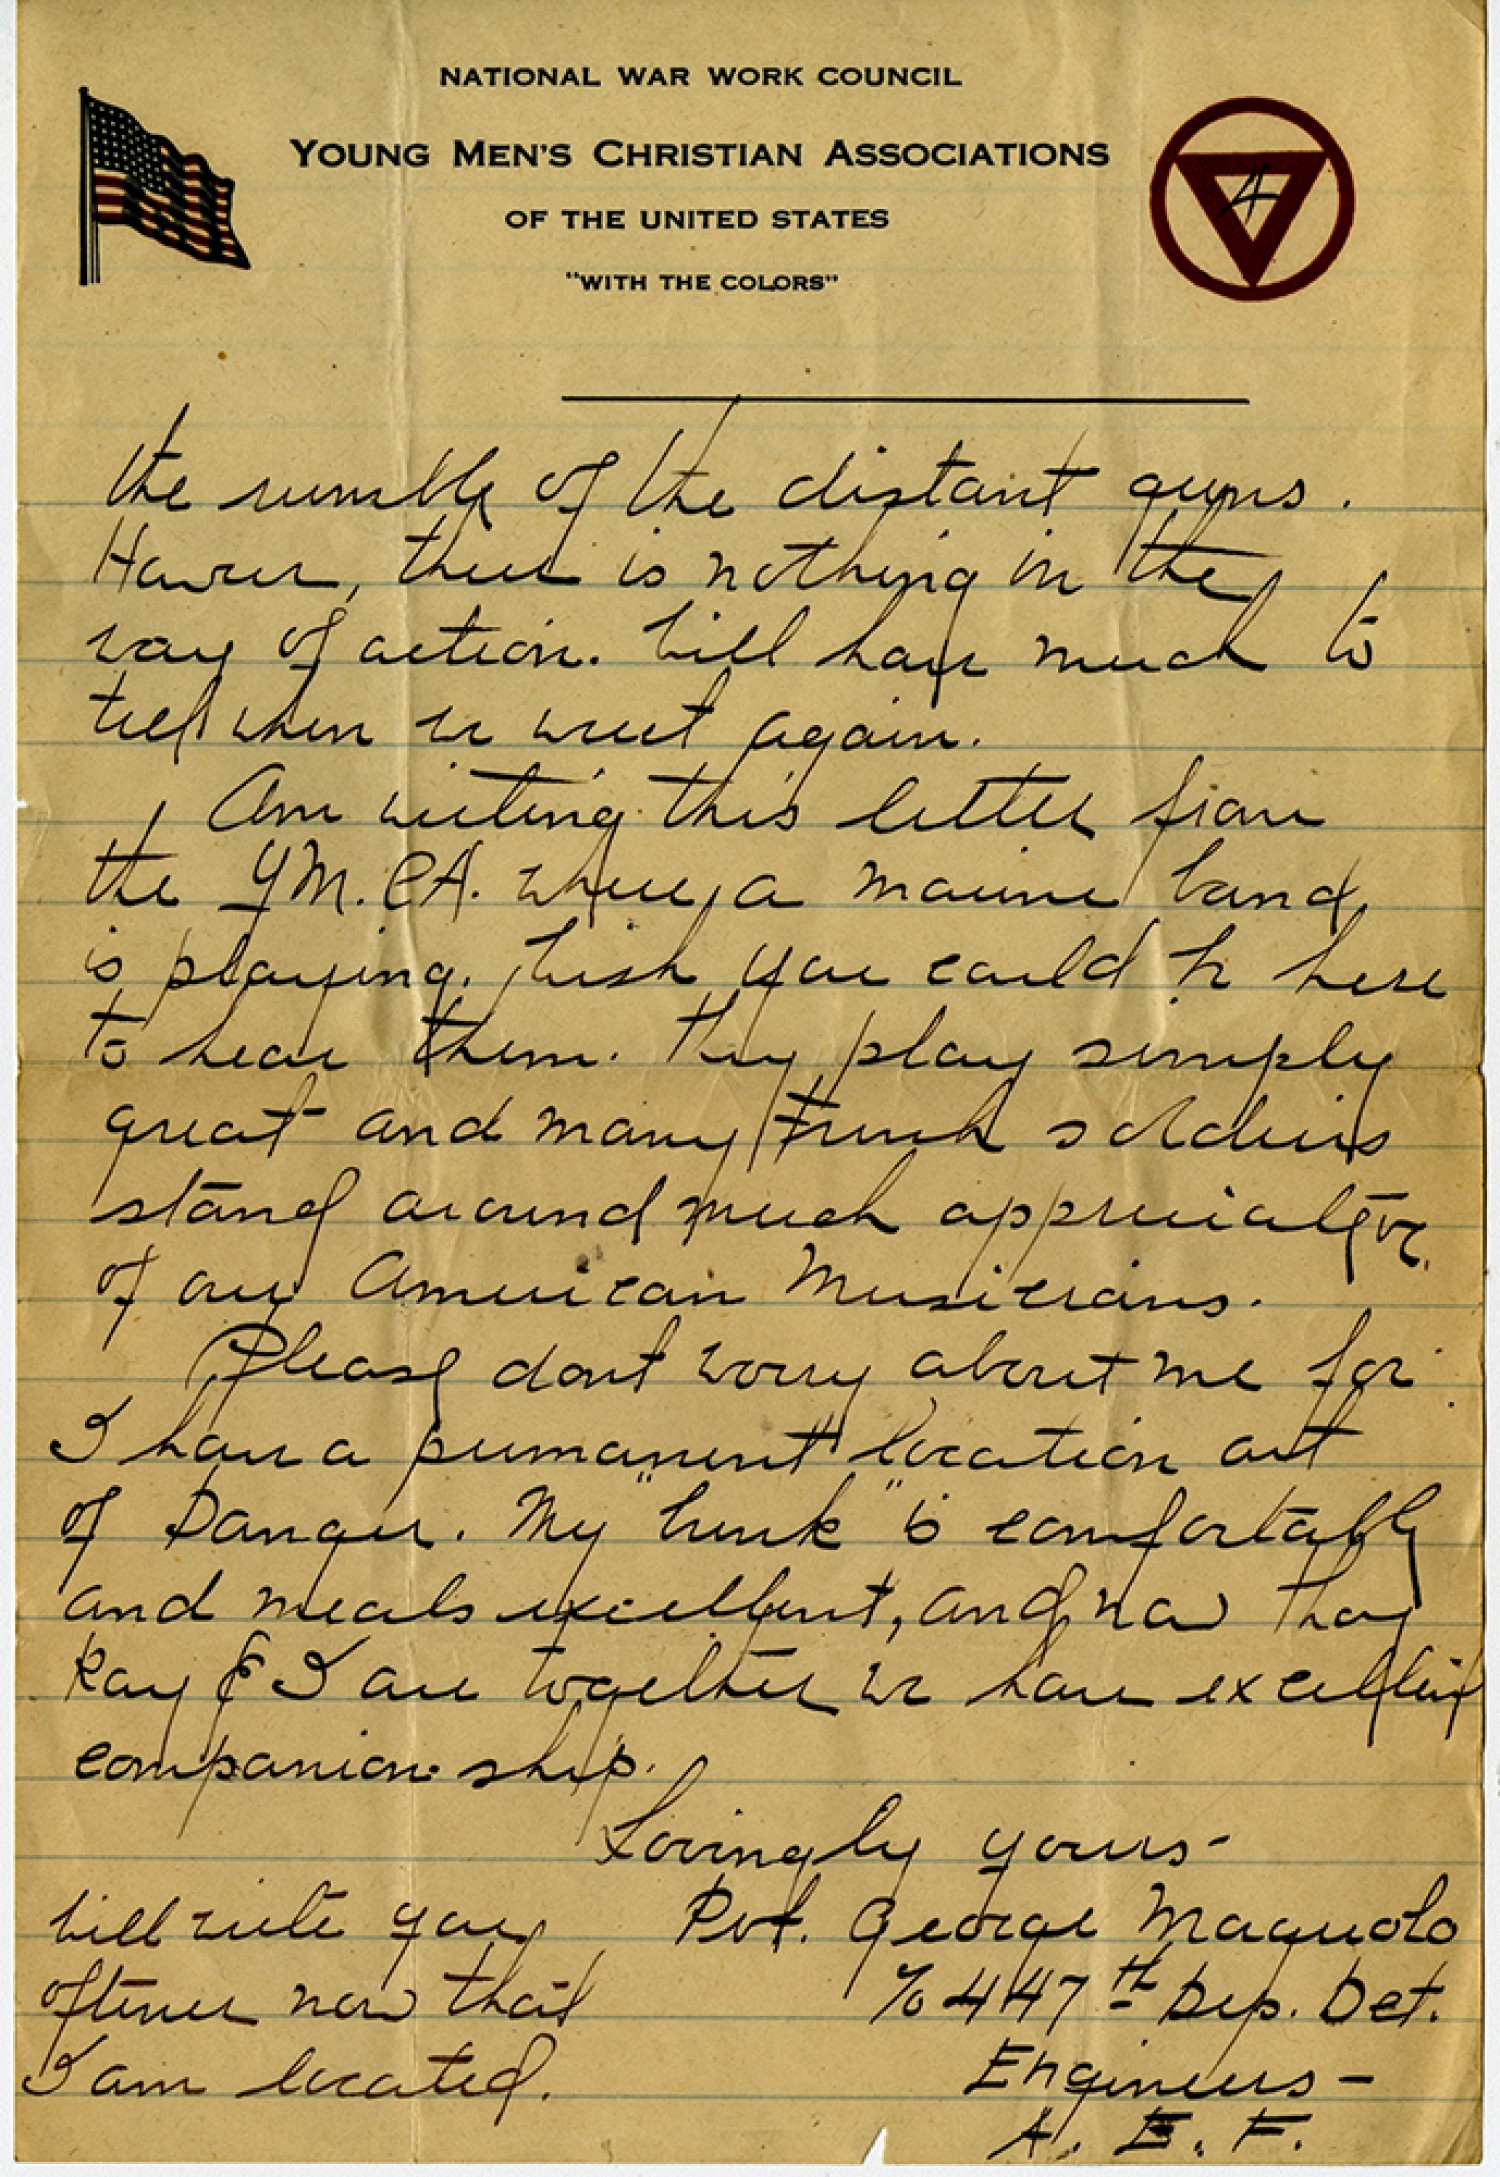 NATIONAL WAR WORK COUNCIL
YOUNG MEN'S CHRISTIAN ASSOCIATIONS
OF THE UNITED STATES
"WITH THE COLORS"
4
the rumble of the distant guns.
However, there is nothing in the
way of action. Will have much to
tell when we meet again.
Am writing this letter from
the Y.M.C.A. where a marine band
is playing. Wish you could be here
to hear them. They play simply
great and many French soldiers
stand around much appreciative
of our American Musicians.
Please dont worry about me for
I have a permanent location out
of Danger. My "bunk" is comfortably
and meals excellent, and now that
Ray & I are together we have excellent
companion-ship.
Lovingly yours-
Pvt. George Magnolo
c/o 447th Dep. Det.
Engineers-
A. E. F.
Will write you
oftener now that
I am located.